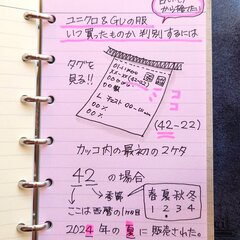 から確かめたい
ユニクロ&GUの服
いつ買ったものか判別するには
タグを
見る!!
(42-22)
ココ
(42-22)
カッコ内の最初の2ケタ
42 の場合
季節
春夏秋冬
1 2 3 4
ここは西暦の1ケタ目
2024年の夏に販売された。